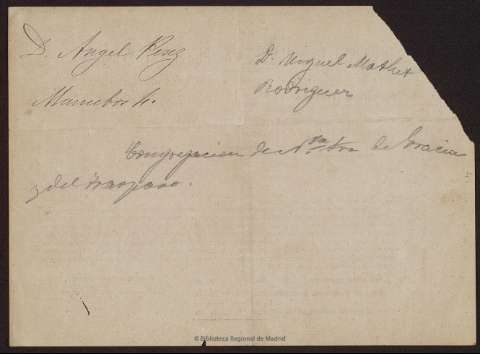 D. Angel Perez
D. Miguel Mathet
Rodriguez
Congregacion de Ntra Sra de Gracia
y del Traspaso.
© Biblioteca Regional de Madrid